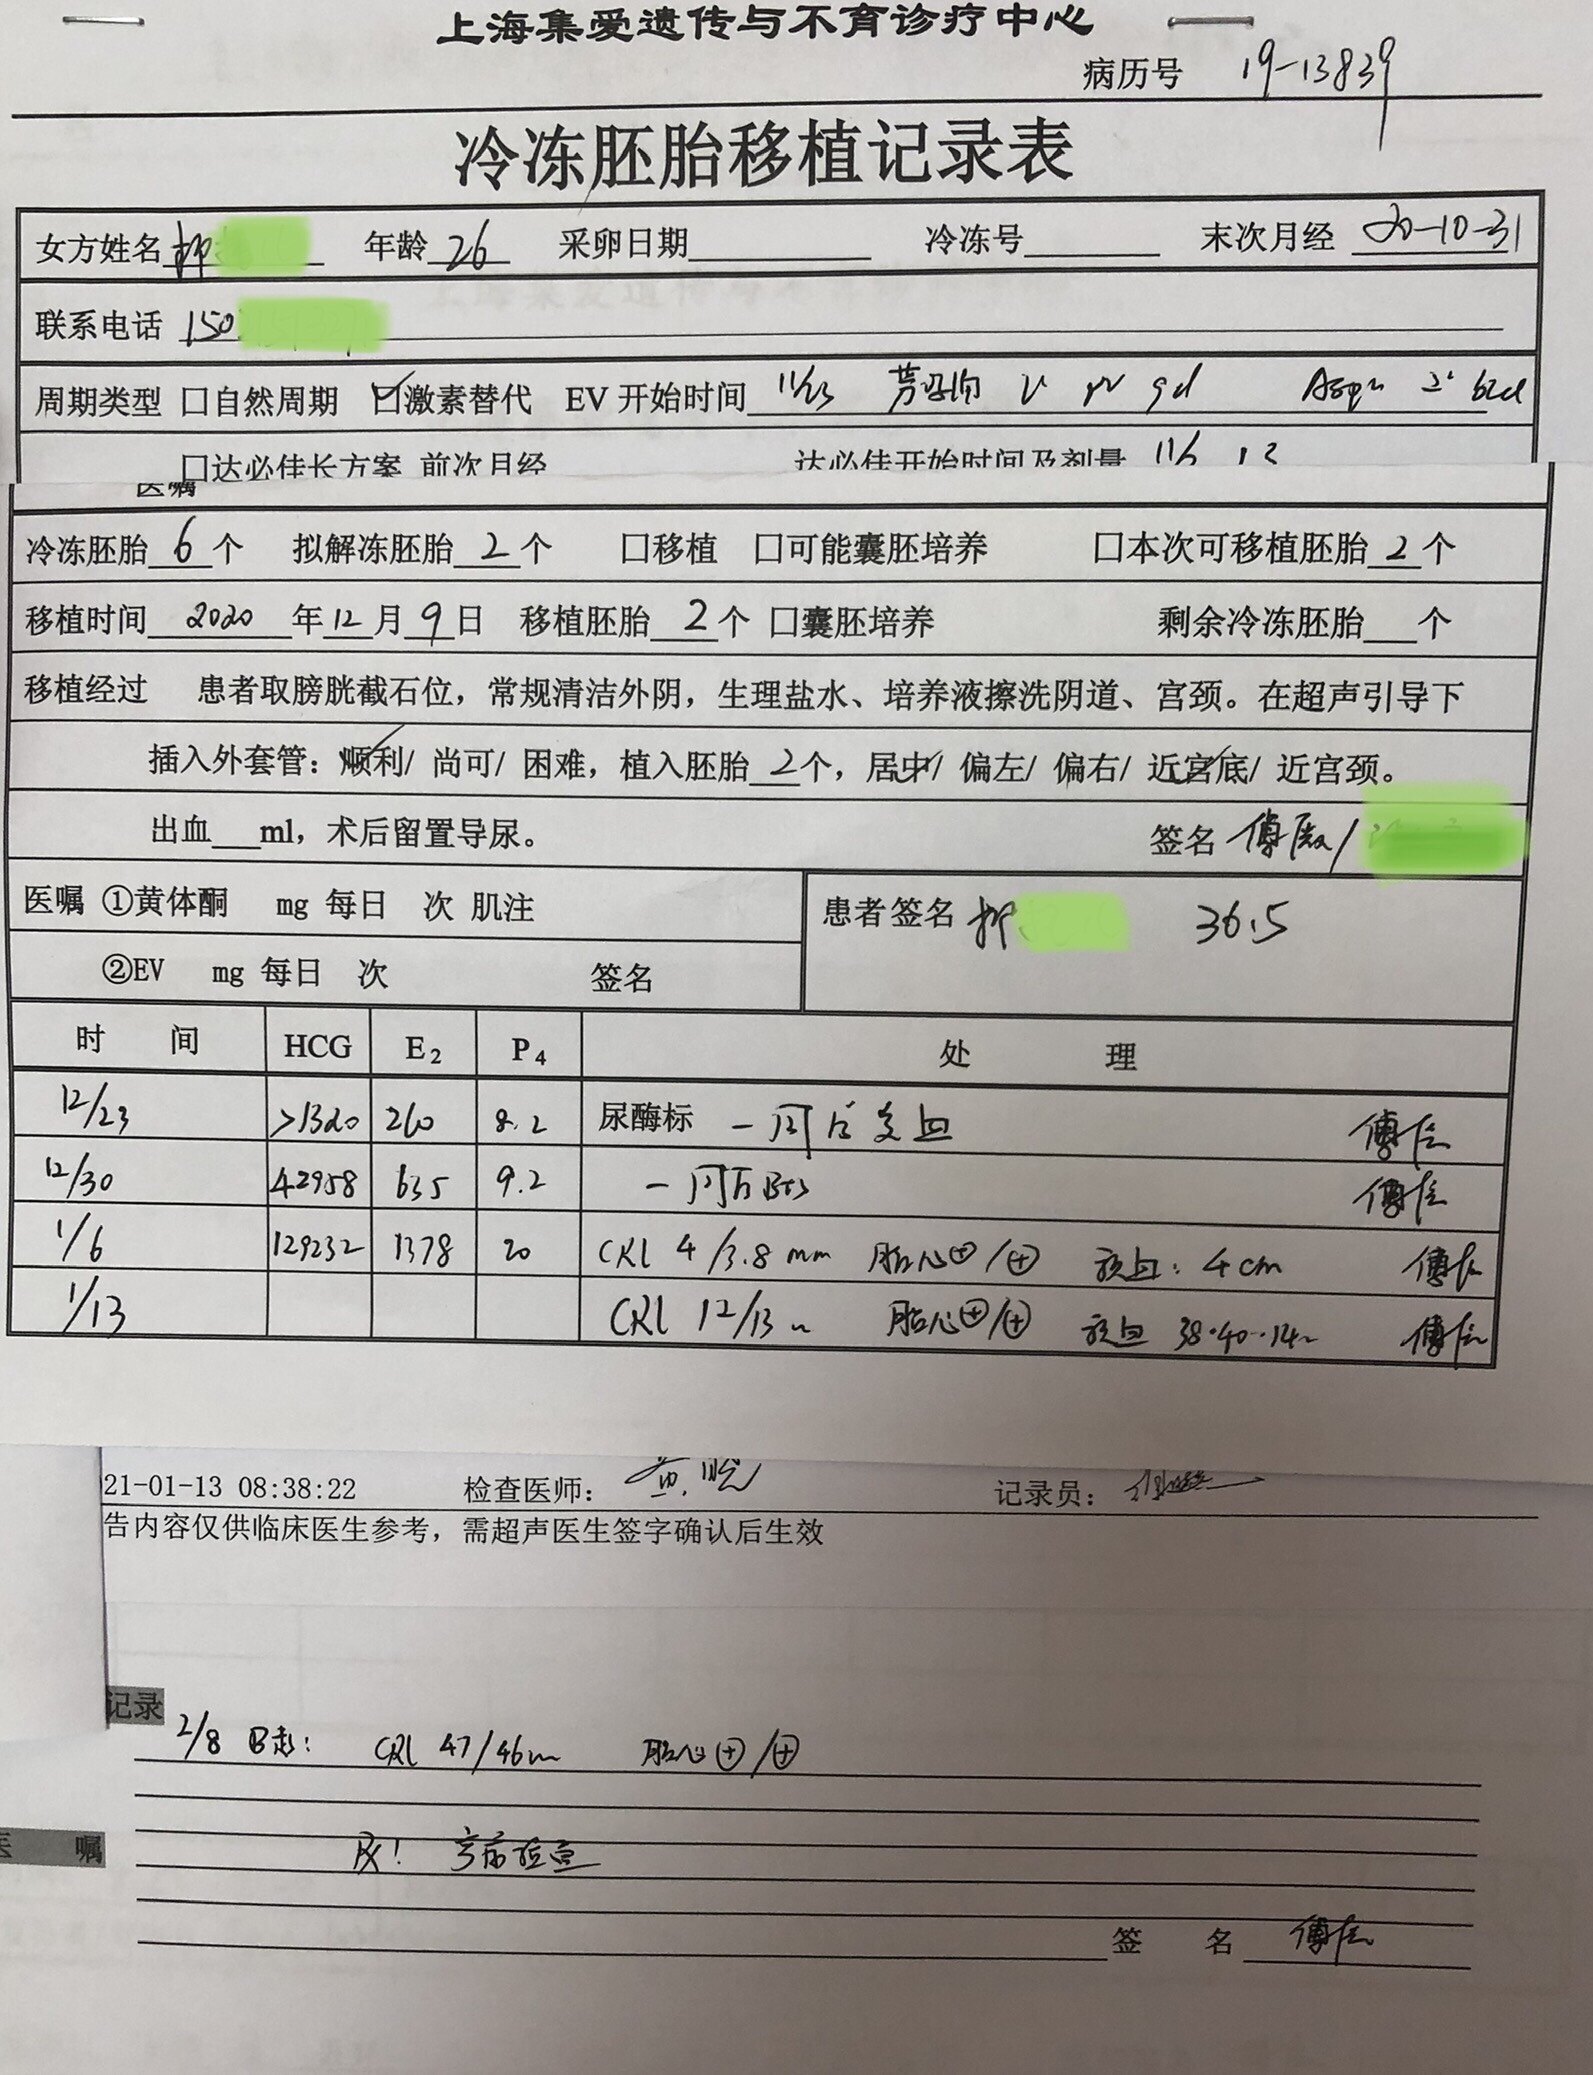 上海集爱遗传与不育诊疗中心
病历号 19-13839
冷冻胚胎移植记录表
女方姓名 年龄 26 采卵日期 冷冻号 末次月经 20-10-31
联系电话 150
周期类型 □自然周期 ☑激素替代 EV 开始时间 11/23
□达必佳长方案 前次月经 达必佳开始时间及剂量 11/6
医嘱
冷冻胚胎 6 个 拟解冻胚胎 2 个 □移植 □可能囊胚培养 □本次可移植胚胎 2 个
移植时间 2020 年 12 月 9 日 移植胚胎 2 个 □囊胚培养 剩余冷冻胚胎 个
移植经过 患者取膀胱截石位，常规清洁外阴，生理盐水、培养液擦洗阴道、宫颈。在超声引导下
插入外套管：顺利/ 尚可/ 困难，植入胚胎 2 个，居中/ 偏左/ 偏右/ 近宫底/ 近宫颈。
出血 ml，术后留置导尿。 签名
医嘱 ①黄体酮 mg 每日 次 肌注 患者签名 36.5
②EV mg 每日 次 签名
时 间 HCG E₂ P₄ 处 理
12/23 >1320 260 8.2 尿酶标 一周后复血
12/30 42958 635 9.2 一周后
1/6 129232 1378 20 CRL 4/3.8mm 胎心⊕/⊕ 4cm
1/13 CRL 12/13 胎心⊕/⊕ 38·40·14
21-01-13 08:38:22 检查医师： 记录员：
告内容仅供临床医生参考，需超声医生签字确认后生效
记录
2/8 B超： CRL 47/46 胎心⊕/⊕
嘱
签 名